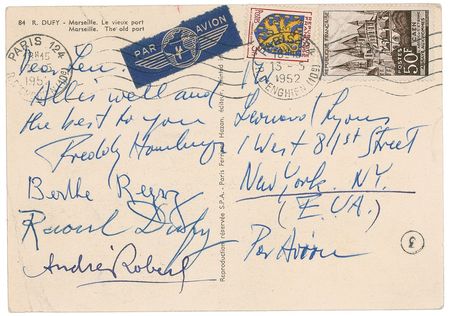 84 R. DUFY - Marseille. Le vieux port
Marseille. The old port
PAR AVION
PARIS 124
18H45
1952
R. D'ENGHIEN (10E)
13-5
1952
ENGHIEN (10E)
POSTES
50F
Dear Len:
All is well and
the best to you
Freddy
Berthe Reysz
Raoul Dufy
André Robert
Reproduction réservée S.P.A. - Paris Fernand Hazan, éditeur
Leonard Lyons
1 West 81st Street
New York. N.Y.
(E.U.A.)
Par Avion
3